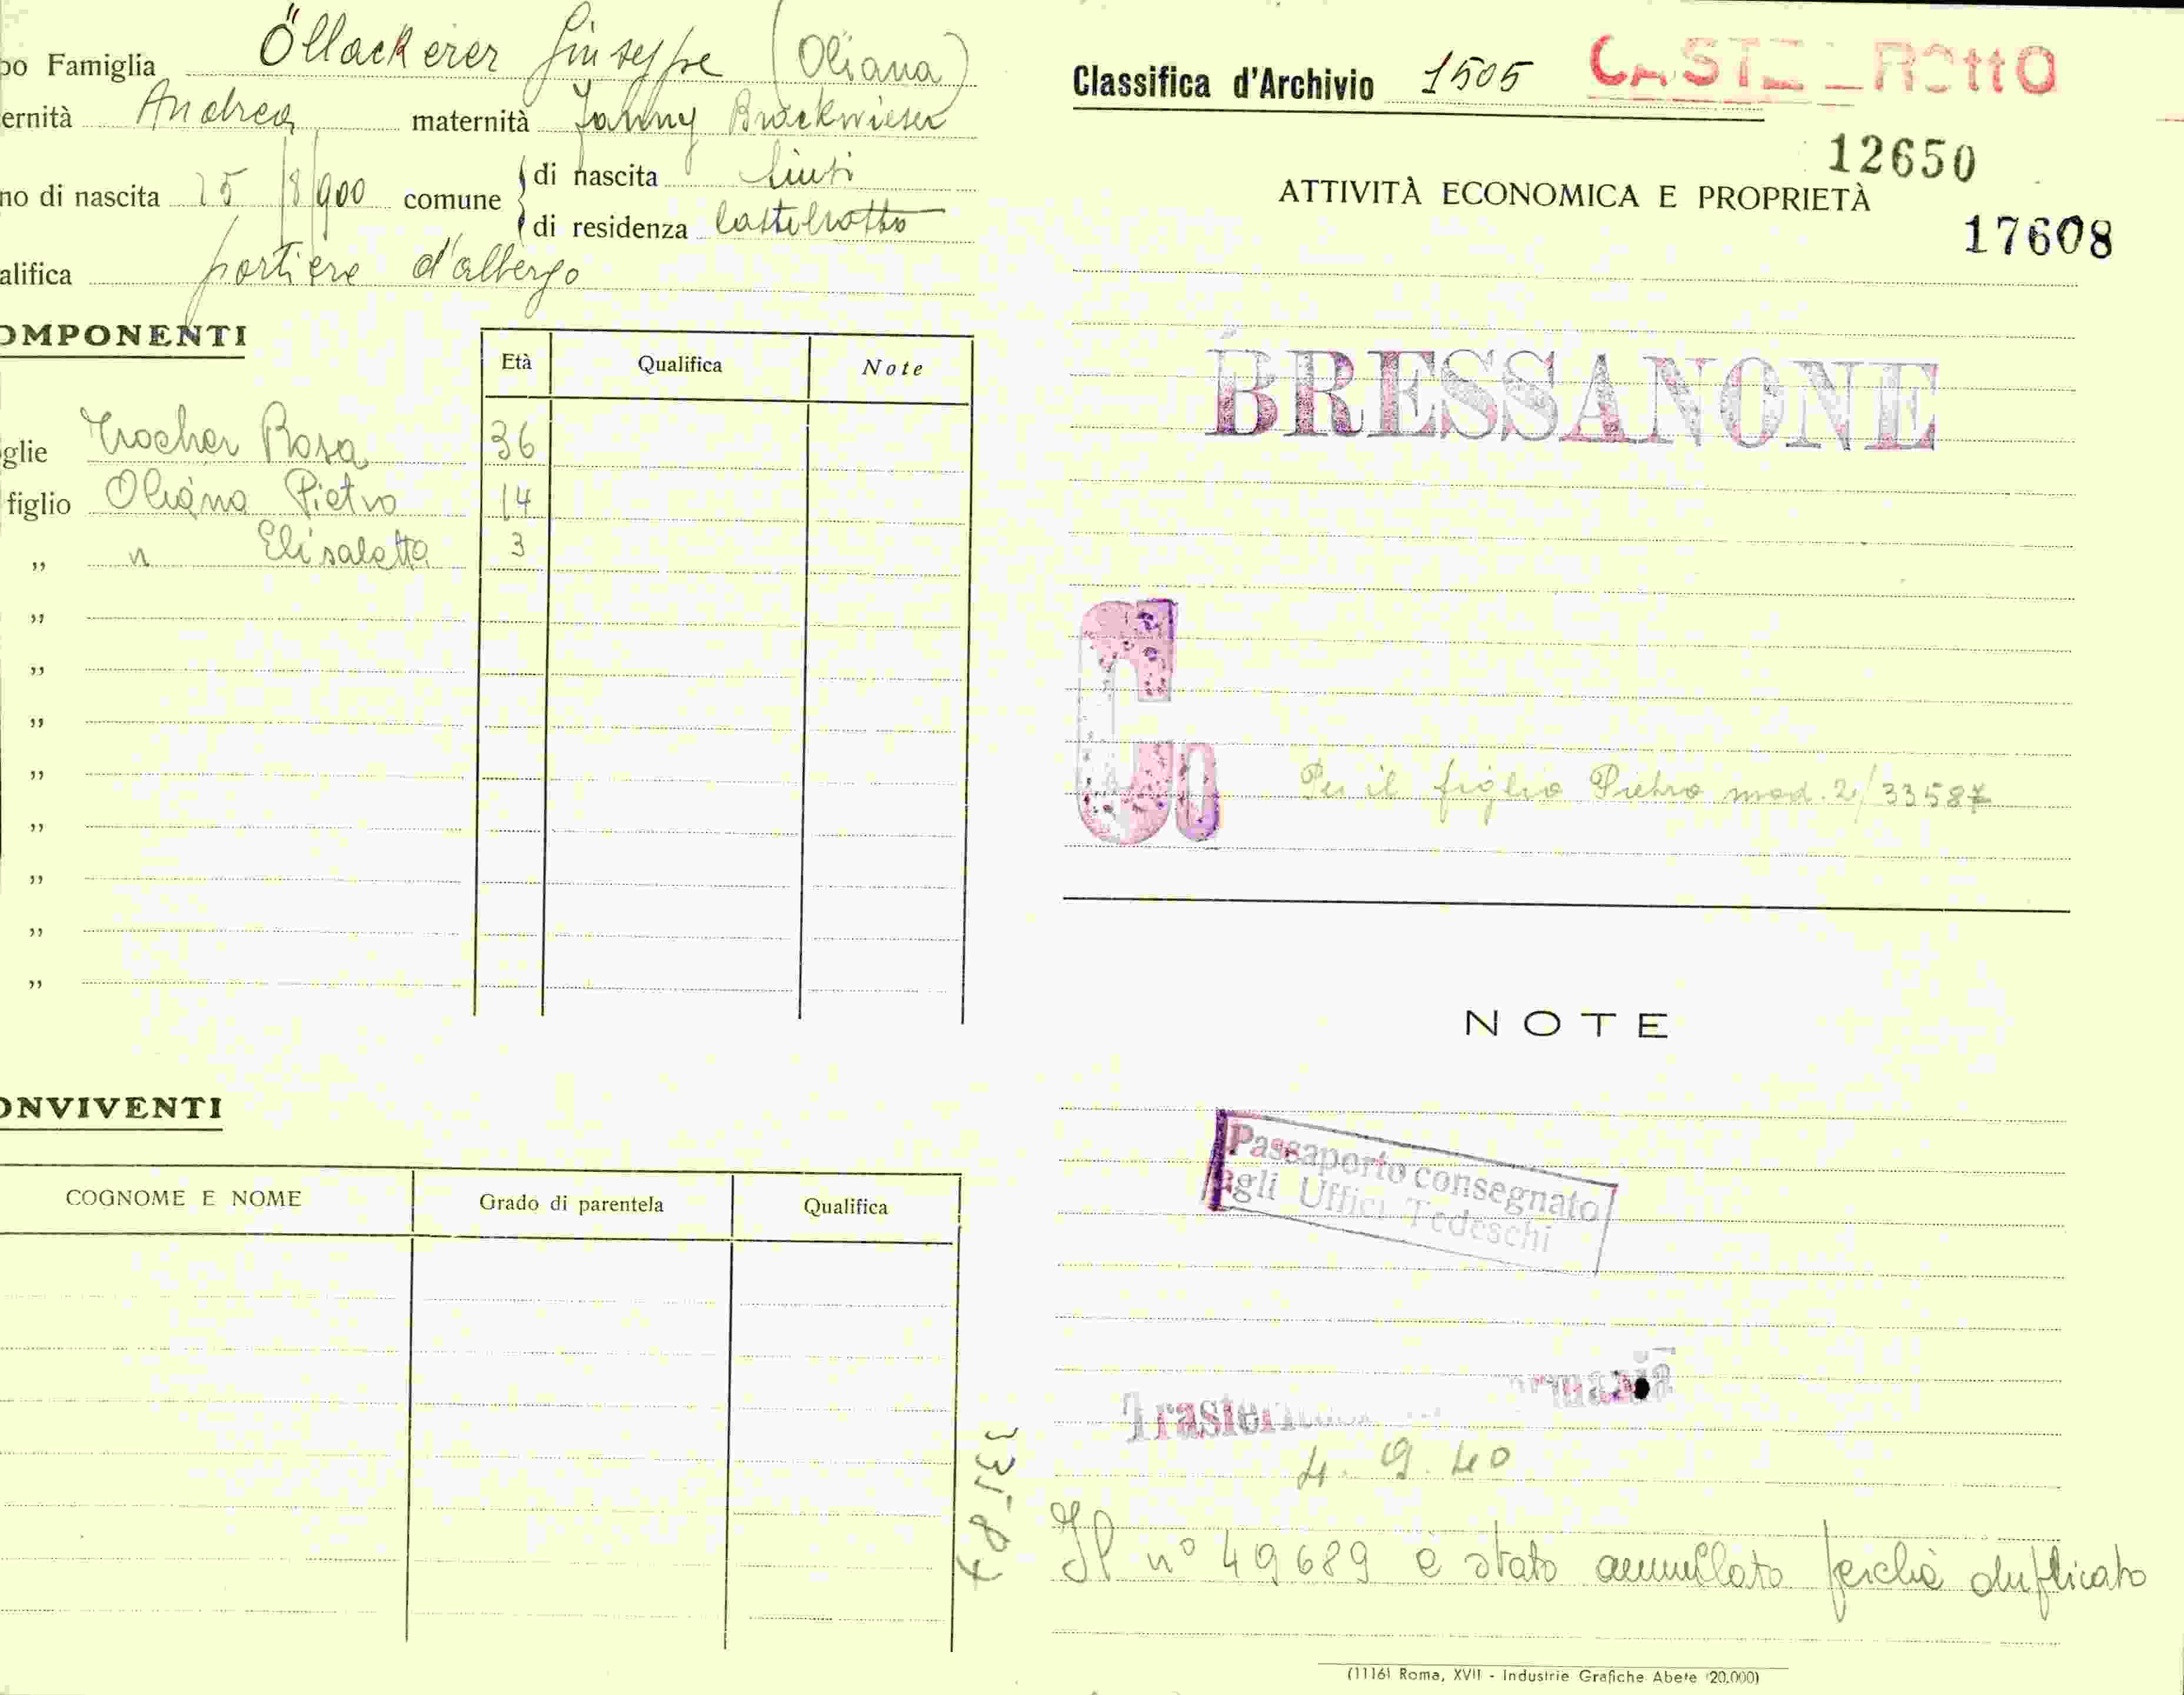 po Famiglia Öllackerer Giuseppe (Oliana)
ernità Andrea maternità Fanny Brockwieser
no di nascita 25/8/900 comune di nascita
di residenza Castelrotto
alifica portiere d'albergo
OMPONENTI
Età Qualifica Note
glie Trocher Rosa 36
figlio Oliana Pietro 14
„ " Elisabetta 3
„
„
„
„
„
„
„
„
ONVIVENTI
COGNOME E NOME Grado di parentela Qualifica
Classifica d'Archivio 1505 CASTELROTTO
12650
ATTIVITÀ ECONOMICA E PROPRIETÀ
17608
BRESSANONE
G0
Per il figlio Pietro mod. 2/33587
NOTE
Passaporto consegnato
agli Uffici Tedeschi
4.9.40
Il n° 49689 è stato annullato perchè duplicato
(1116) Roma, XVII - Industrie Grafiche Abete (20.000)